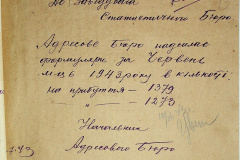 До Завідувача
Статистичного Бюро
Адресове Бюро надсилає
формуляри за Червень
м-ць 1943 року в кількості
на прибуття – 1379
– " – 1273
Начальник
Адресового Бюро